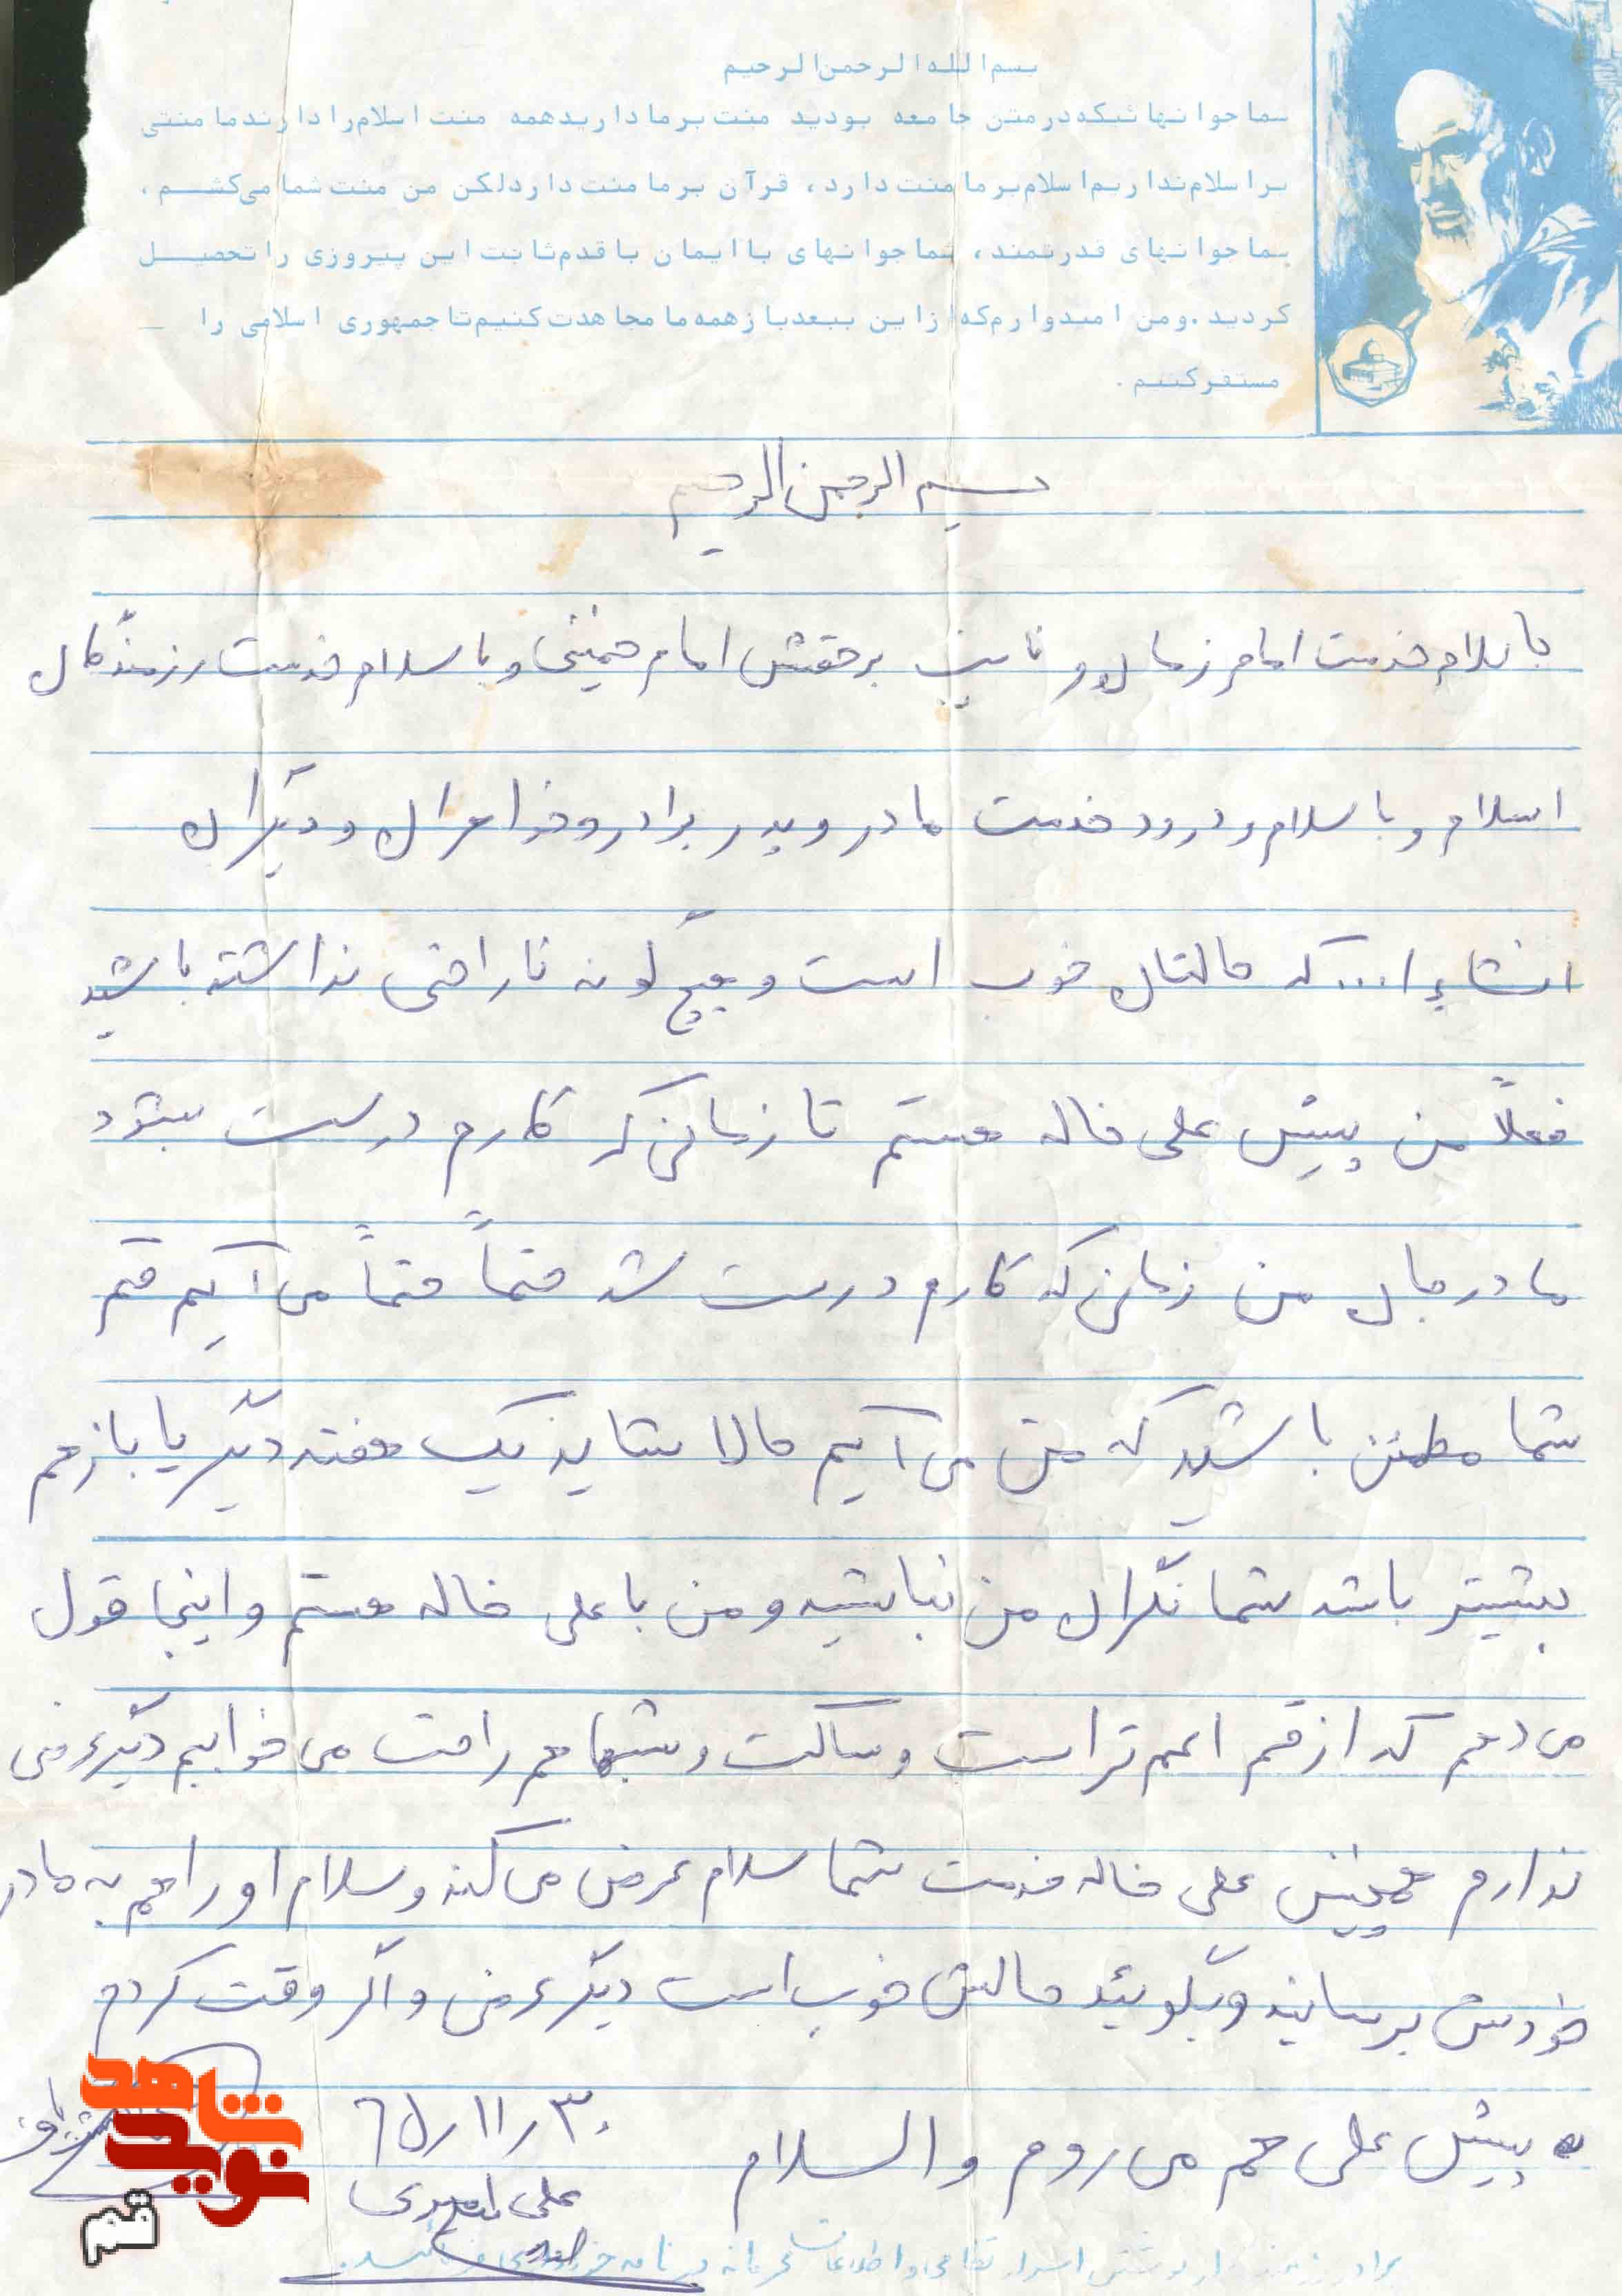 بسم الله الرحمن الرحیم
شما جوانهائیکه در متن جامعه بودید منت بر ما دارید همه منت اسلام را دارند ما منتی
بر اسلام نداریم اسلام بر ما منت دارد، قرآن بر ما منت دارد لکن من منت شما می‌کشم،
شما جوانهای قدرتمند، شما جوانهای با ایمان با قدم ثابت این پیروزی را تحصیل
کردید. و من امیدوارم که از این ببعد باز همه ما مجاهدت کنیم تا جمهوری اسلامی را
مستقر کنیم.
بسم الرحمن الرحیم
با سلام خدمت امام زمان و نایب برحقش امام خمینی و با سلام خدمت رزمندگان
اسلام و با سلام و درود خدمت مادر و پدر برادر و خواهران و دیگران
انشاء ا... که حالتان خوب است و هیچ گونه ناراحتی نداشته باشید
فعلاً من پیش علی خاله هستم تا زمانی که کارم درست بشود
مادر جان من زمانی که کارم درست شد حتماً حتماً می آیم قم
شما مطمئن باشید که من می آیم حالا شاید یک هفته دیگر یا بازهم
بیشتر باشد شما نگران من نباشید و من با علی خاله هستم و اینجا قول
می دهم که از قم اهم تر است و ساکت و شبها هم راحت می خوابیم دیگر عرضی
ندارم همچنین علی خاله خدمت شما سلام عرض می کند و سلام او را هم به مادر
خودش برسانید و بگوئید حالش خوب است دیگر عرضی و اگر وقت کردم
پیش علی هم می روم والسلام
۶۵/۱۱/۳۰
علی امیدی
شاهد
نوید
قم